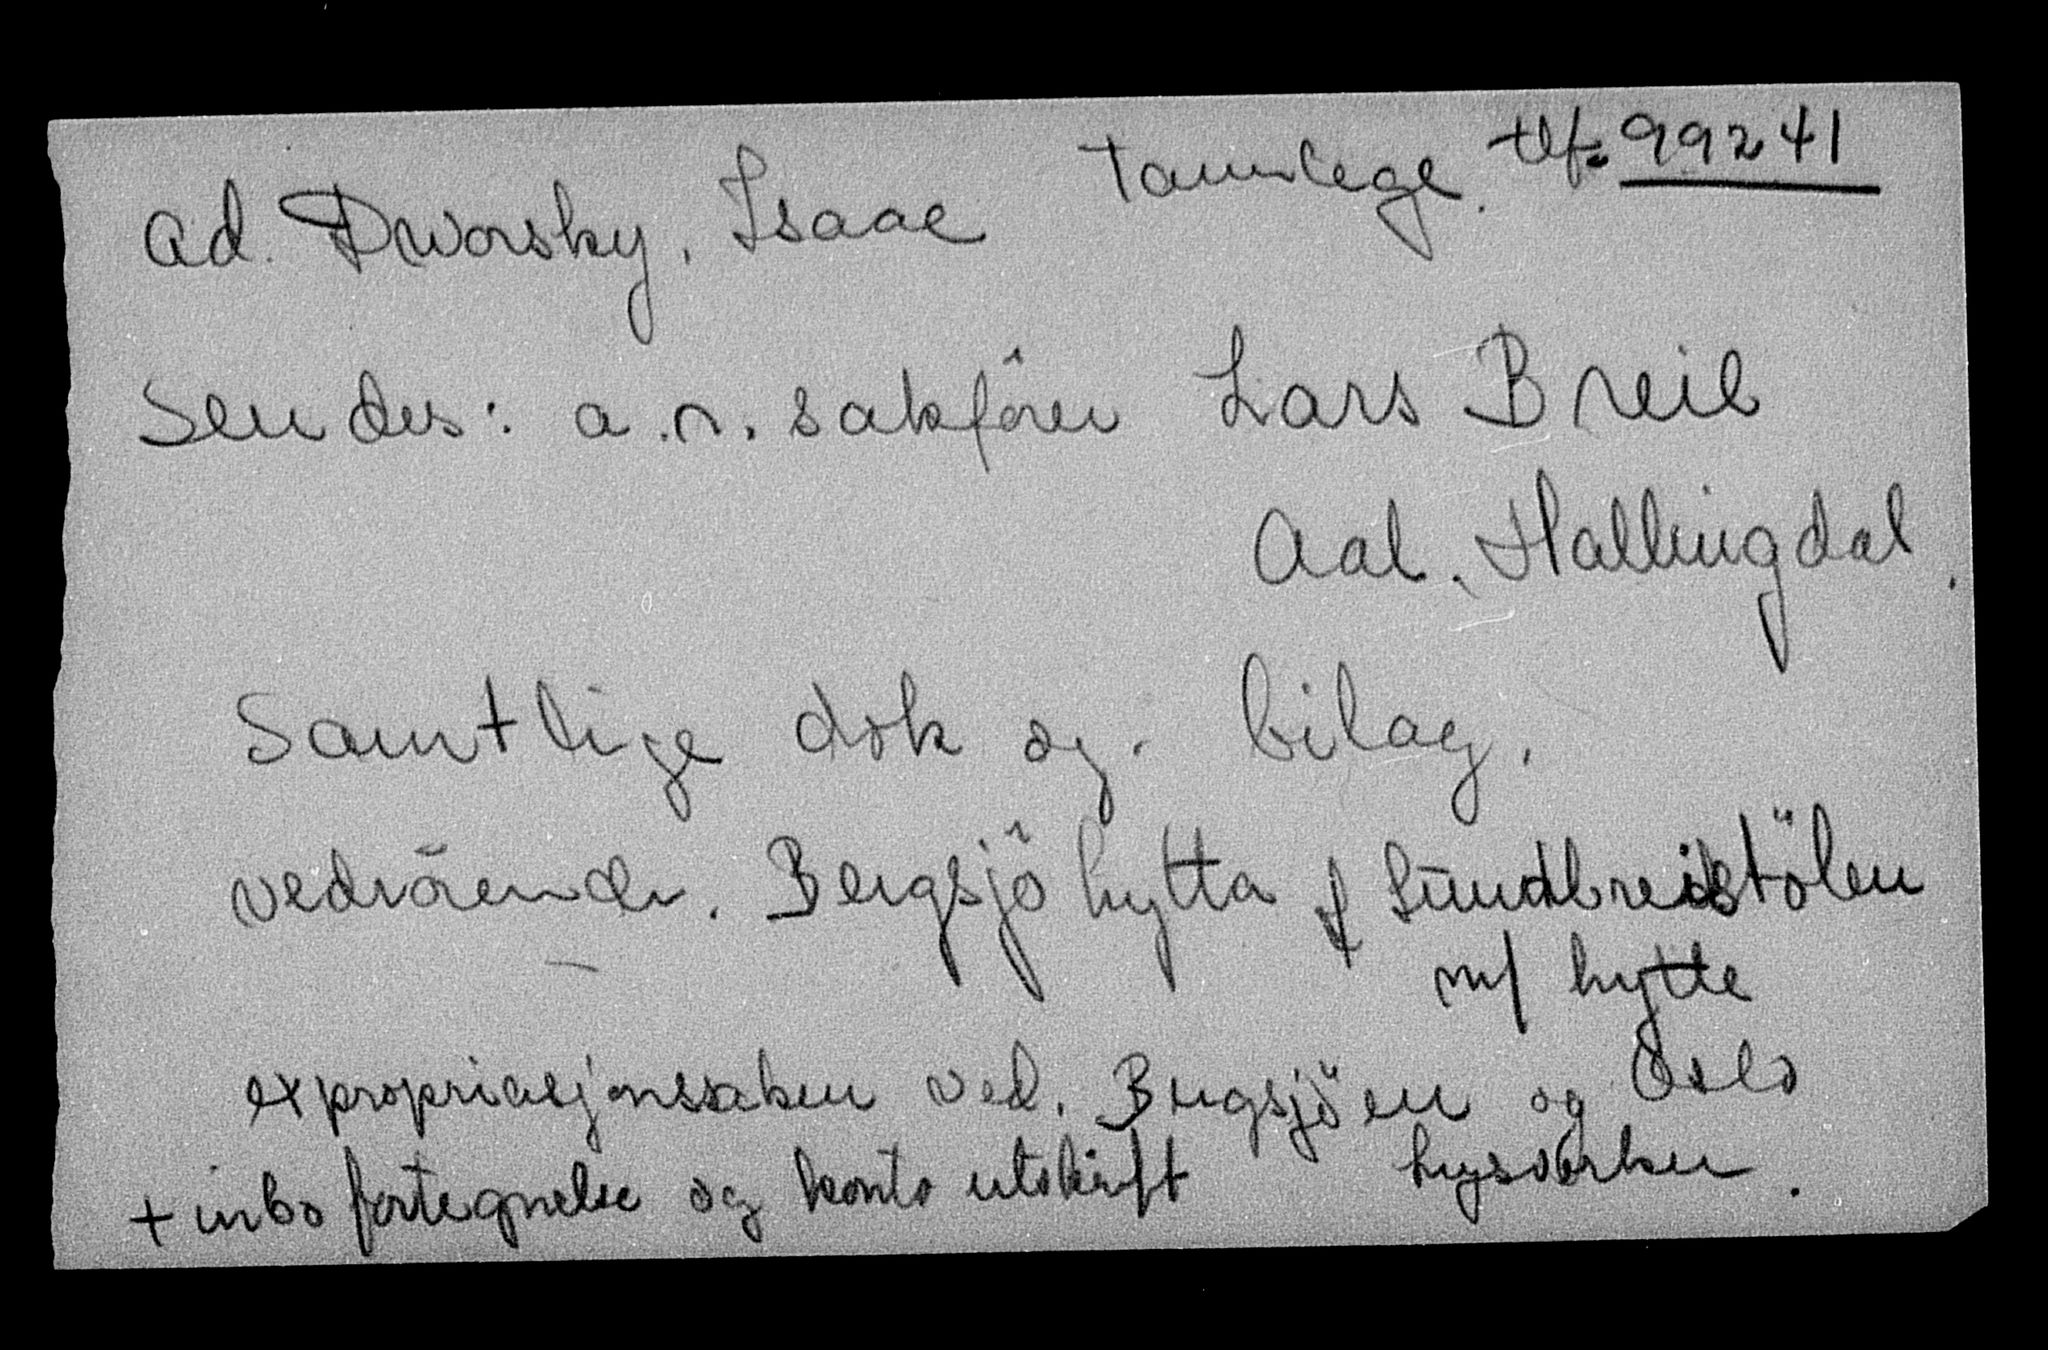 ad. Dworsky, Isaac Tannlege. tlf. 99241
Sendes: o.r. sakfører Lars Breie
Aal, Hallingdal.
Samtlige dok og. bilag.
vedrörende. Bergsjö hytta & Sundbreistölen
m/ hytte
expropriasjonssaken ved. Bergsjöen og Oslo
lysverker.
+ inbo fortegnelse og konto utskrift